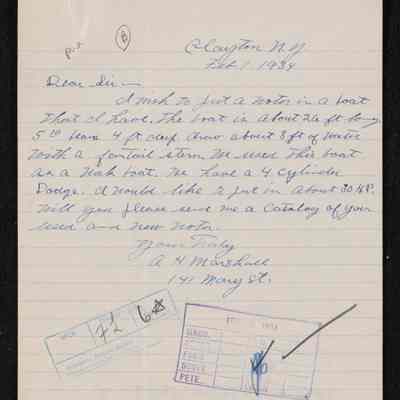 p.s.
B
Clayton N.Y
Feb 1 1934
Dear Sir—
I wish to put a motor in a boat
that I have. The boat is about 26 ft long
5 ft 4 ft deep draw about 3 ft of water
with a fantail stern. We used this boat
as a boat. We have a 4 Cylinder
Dodge. I would like to put in about 30 H.P.
Will you please send me a Catalog of your
used and new motor.
Yours Truly
A Marshall
141 Mary St.
72 6
1934
PETE